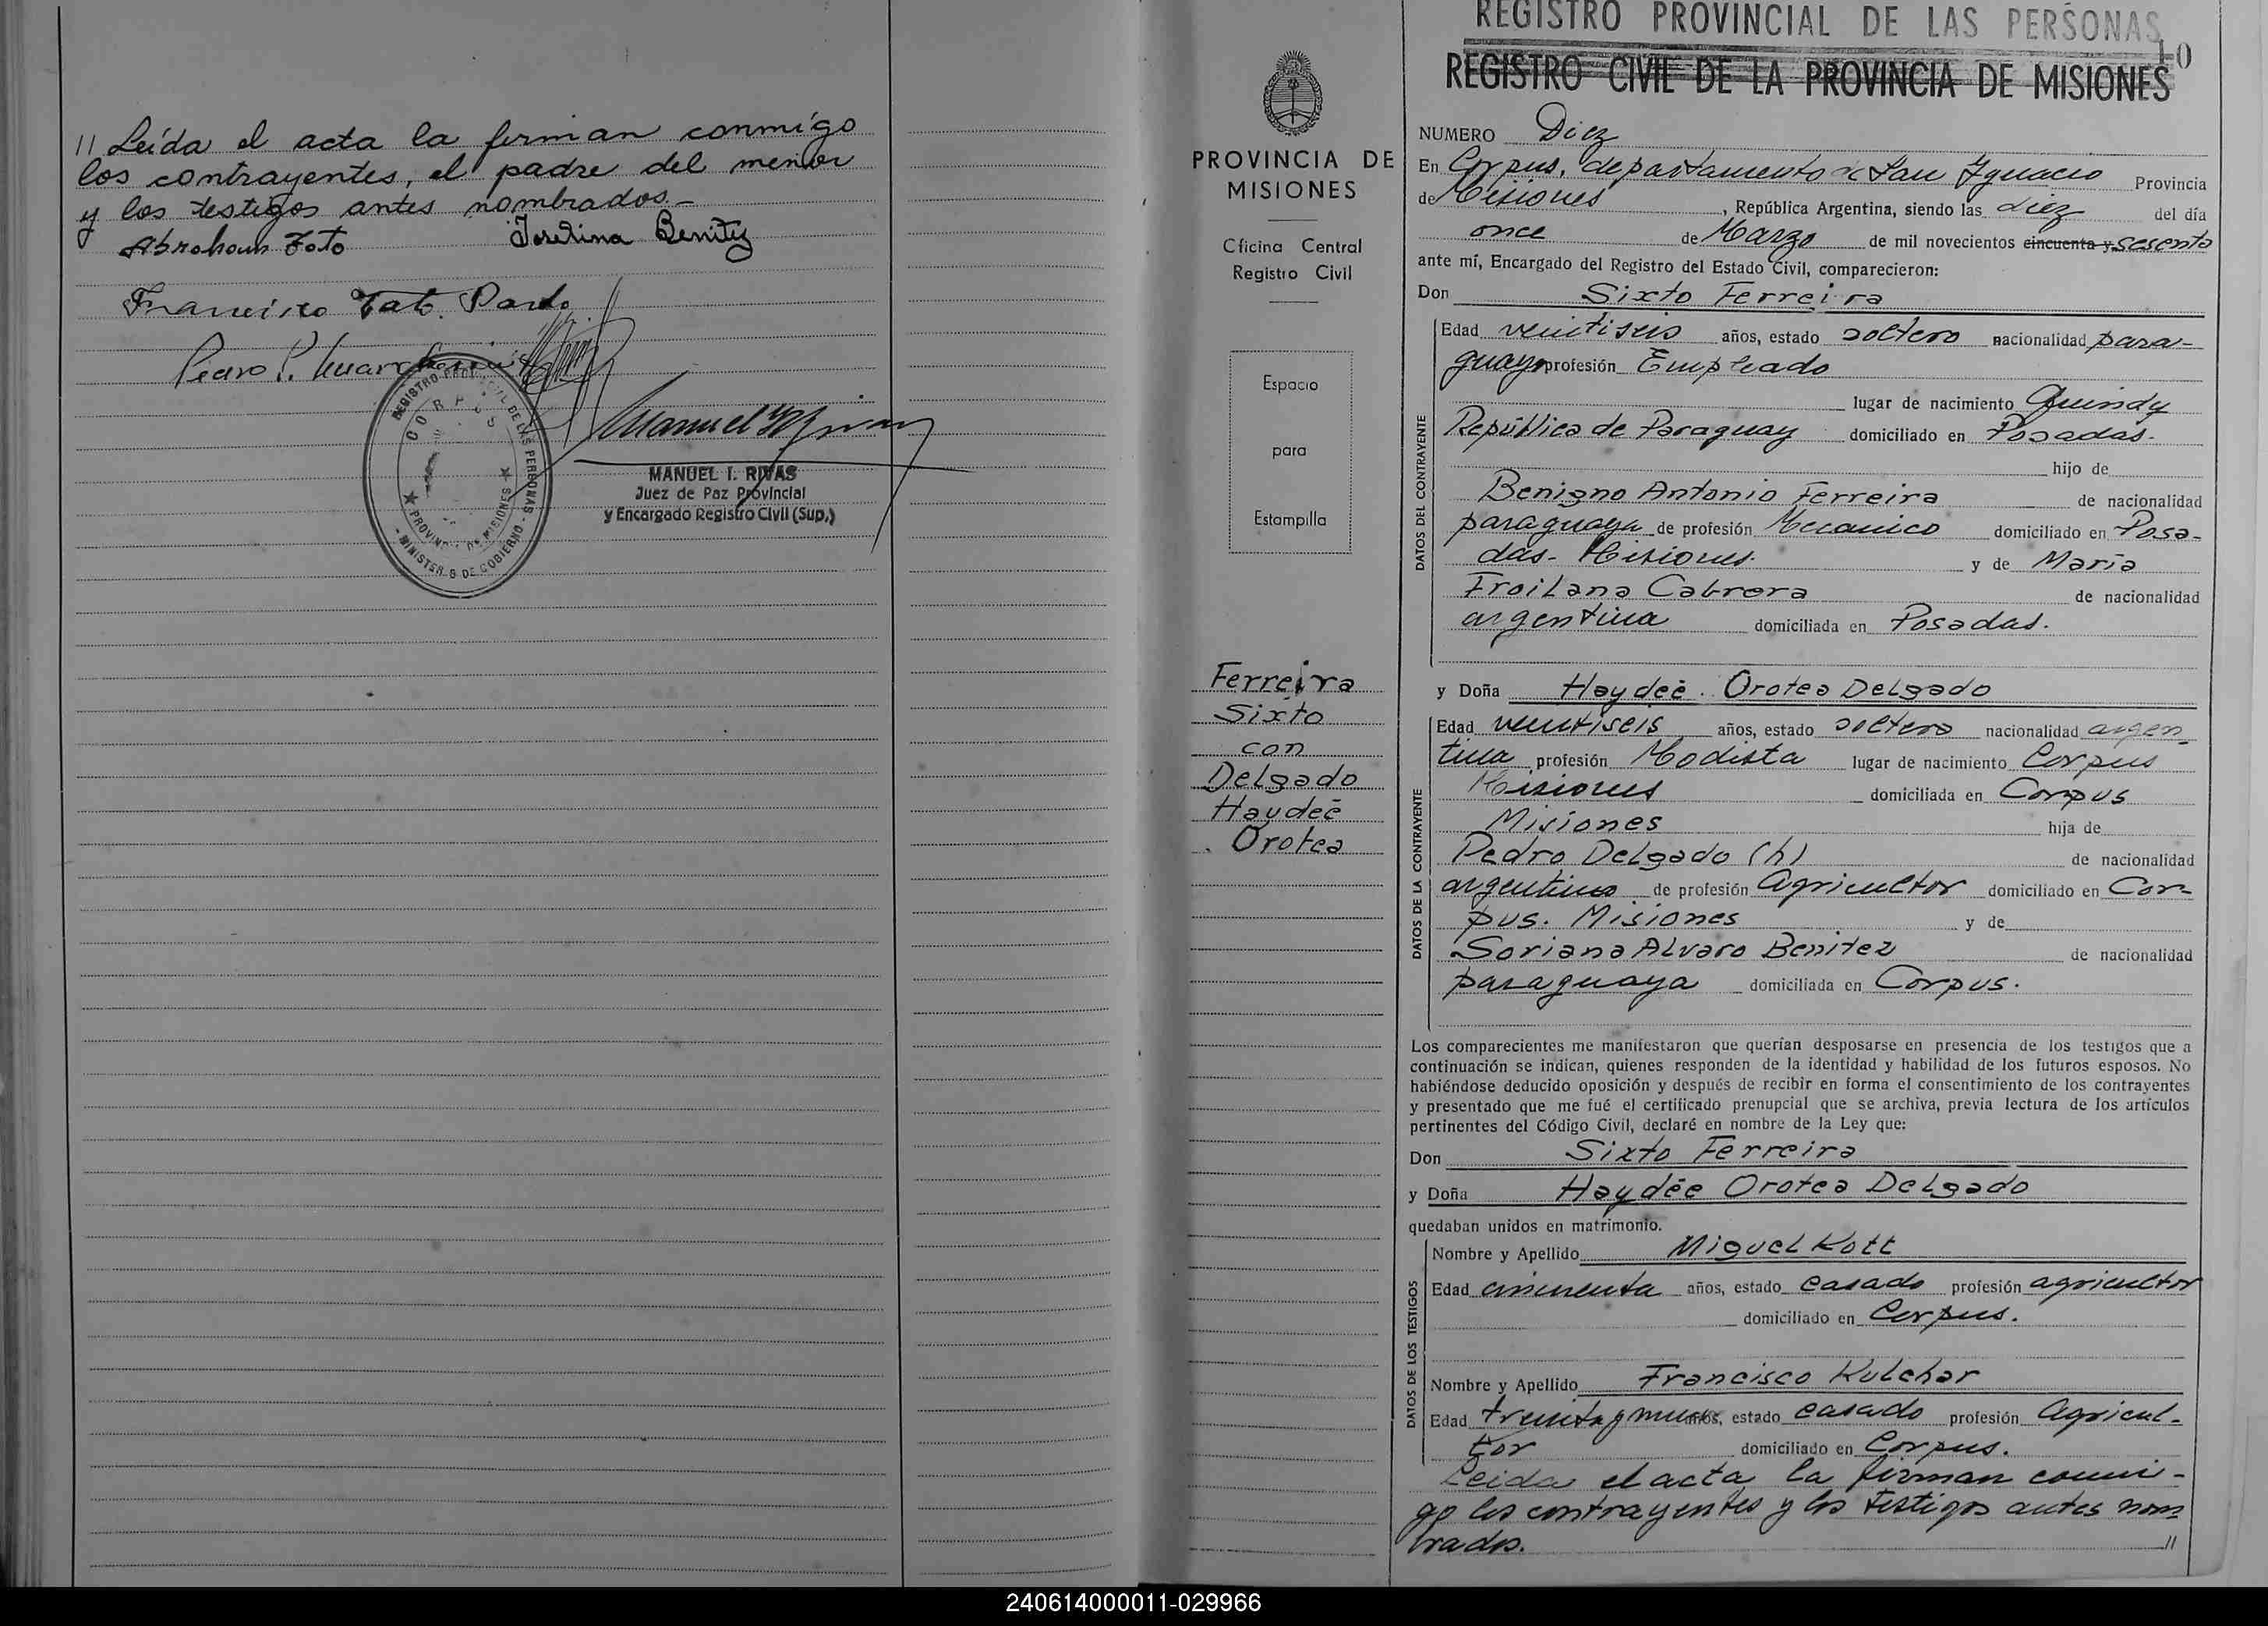 // Leída el acta la firman conmigo
los contrayentes, el padre del menor
y los testigos antes nombrados.-
Abraham Foto
Joselina Benitez
Francisco Tato. Pardo
Pedro P.
REGISTRO PROVINCIAL DE LAS PERSONAS
CORPUS
PROVINCIA DE MISIONES
MINISTERIO DE GOBIERNO
MANUEL I. RIVAS
Juez de Paz Provincial
y Encargado Registro Civil (Sup.)
PROVINCIA DE
MISIONES
Oficina Central
Registro Civil
Espacio
para
Estampilla
Ferreira
Sixto
con
Delgado
Haydeé
Orotea
REGISTRO PROVINCIAL DE LAS PERSONAS
10
REGISTRO CIVIL DE LA PROVINCIA DE MISIONES
NUMERO Diez
En Corpus, departamento de San Ignacio Provincia
de Misiones, República Argentina, siendo las diez del día
once de Marzo de mil novecientos cincuenta y sesenta
ante mí, Encargado del Registro del Estado Civil, comparecieron:
Don Sixto Ferreira
DATOS DEL CONTRAYENTE
Edad veintiseis años, estado soltero nacionalidad para-
guayo profesión Empleado
lugar de nacimiento Quindy
República de Paraguay domiciliado en Posadas.
hijo de
Benigno Antonio Ferreira de nacionalidad
paraguaya de profesión Mecanico domiciliado en Posa-
das- Misiones. y de María
Froilana Cabrera de nacionalidad
argentina domiciliada en Posadas.
y Doña Haydeé. Orotea Delgado
DATOS DE LA CONTRAYENTE
Edad veintiseis años, estado soltera nacionalidad argen-
tina profesión Modista lugar de nacimiento Corpus
Misiones domiciliada en Corpus
Misiones hija de
Pedro Delgado (h) de nacionalidad
argentino de profesión Agricultor domiciliado en Cor-
pus. Misiones y de
Soriana Alvaro Benitez de nacionalidad
paraguaya domiciliada en Corpus.
Los comparecientes me manifestaron que querían desposarse en presencia de los testigos que a
continuación se indican, quienes responden de la identidad y habilidad de los futuros esposos. No
habiéndose deducido oposición y después de recibir en forma el consentimiento de los contrayentes
y presentado que me fué el certificado prenupcial que se archiva, previa lectura de los artículos
pertinentes del Código Civil, declaré en nombre de la Ley que:
Don Sixto Ferreira
y Doña Haydée Orotea Delgado
quedaban unidos en matrimonio.
DATOS DE LOS TESTIGOS
Nombre y Apellido Miguel Kott
Edad cincuenta años, estado casado profesión agricultor
domiciliado en Corpus.
Nombre y Apellido Francisco Kulchar
Edad treinta y nueve años, estado casado profesión Agricul-
tor domiciliado en Corpus.
Leida el acta la firman conmi-
go los contrayentes y los testigos antes nom-
brados. //
240614000011-029966